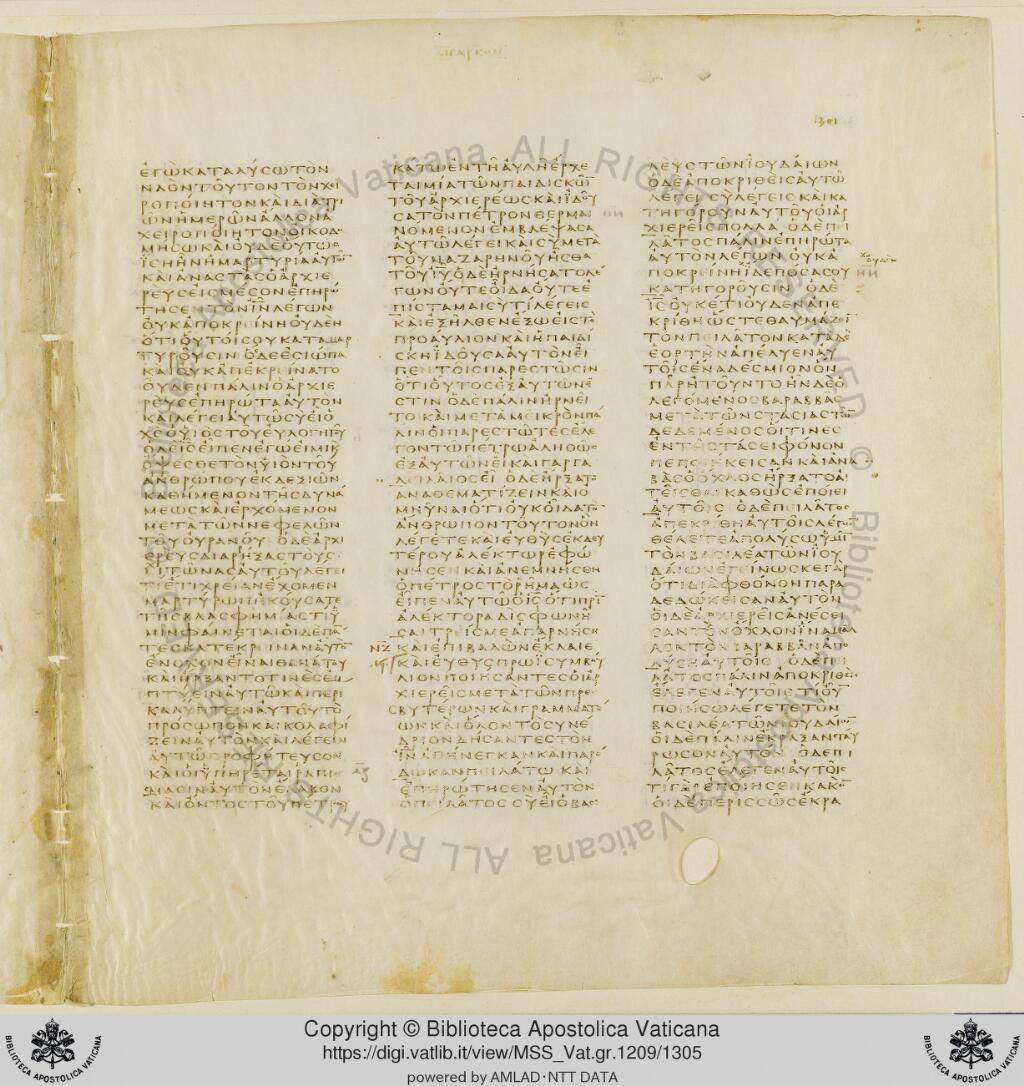 ΜΑΡΚΟΝ
ΕΓΩΚΑΤΑΛΥΣΩΤΟΝ
ΝΑΟΝΤΟΥΤΟΝΤΟΝΧΕΙ
ΡΟΠΟΙΗΤΟΝΚΑΙΔΙΑΤΡΙ
ΩΝΗΜΕΡΩΝΑΛΛΟΝΑ
ΧΕΙΡΟΠΟΙΗΤΟΝΟΙΚΟΔΟ
ΜΗΣΩΚΑΙΟΥΔΕΟΥΤΩΣ
ΙΣΗΗΝΗΜΑΡΤΥΡΙΑΑΥΤΩΝ
ΚΑΙΑΝΑΣΤΑΣΟΑΡΧΙΕ
ΡΕΥΣΕΙΣΜΕΣΟΝΕΠΗΡΩ
ΤΗΣΕΝΤΟΝΙΝΛΕΓΩΝ
ΟΥΚΑΠΟΚΡΕΙΝΗΟΥΔΕΝ
ΟΤΙΟΥΤΟΙΣΟΥΚΑΤΑΜΑΡ
ΤΥΡΟΥΣΙΝ ΟΔΕΕΣΙΩΠΑ
ΚΑΙΟΥΚΑΠΕΚΡΕΙΝΑΤΟ
ΟΥΔΕΝΠΑΛΙΝΟΑΡΧΙΕ
ΡΕΥΣΕΠΗΡΩΤΑΑΥΤΟΝ
ΚΑΙΛΕΓΕΙΑΥΤΩΣΥΕΙΟ
ΧΣΟΥΙΟΣΤΟΥΕΥΛΟΓΗΤΟΥ
ΟΔΕΙΣΕΙΠΕΝΕΓΩΕΙΜΙΚ
ΟΨΕΣΘΕΤΟΝΥΙΟΝΤΟΥ
ΑΝΘΡΩΠΟΥΕΚΔΕΞΙΩΝ
ΚΑΘΗΜΕΝΟΝΤΗΣΔΥΝΑ
ΜΕΩΣΚΑΙΕΡΧΟΜΕΝΟΝ
ΜΕΤΑΤΩΝΝΕΦΕΛΩΝ
ΤΟΥΟΥΡΑΝΟΥ ΟΔΕΑΡΧΙ
ΕΡΕΥΣΔΙΑΡΗΞΑΣΤΟΥΣ
ΧΙΤΩΝΑΣΑΥΤΟΥΛΕΓΕΙ
ΤΙΕΤΙΧΡΕΙΑΝΕΧΟΜΕΝ
ΜΑΡΤΥΡΩΝΗΚΟΥΣΑΤΕ
ΤΗΣΒΛΑΣΦΗΜΙΑΣΤΙΥ
ΜΙΝΦΑΙΝΕΤΑΙΟΙΔΕΠΑ
ΤΕΣΚΑΤΕΚΡΙΝΑΝΑΥΤΟ
ΕΝΟΧΟΝΕΙΝΑΙΘΑΝΑΤΟΥ
ΚΑΙΗΡΞΑΝΤΟΤΙΝΕΣΕΜ
ΠΤΥΕΙΝΑΥΤΩΚΑΙΠΕΡΙ
ΚΑΛΥΠΤΕΙΝΑΥΤΟΥΤΟ
ΠΡΟΣΩΠΟΝΚΑΙΚΟΛΑΦΙ
ΖΕΙΝΑΥΤΟΝΚΑΙΛΕΓΕΙΝ
ΑΥΤΩΠΡΟΦΗΤΕΥΣΟΝ
ΚΑΙΟΙΥΠΗΡΕΤΑΙΡΑΠΙ
ΣΜΑΣΙΝΑΥΤΟΝΕΛΑΒΟΝ
ΚΑΙΟΝΤΟΣΤΟΥΠΕΤΡΟΥ
ΚΑΤΩΕΝΤΗΑΥΛΗΕΡΧΕ
ΤΑΙΜΙΑΤΩΝΠΑΙΔΙΣΚΩ
ΤΟΥΑΡΧΙΕΡΕΩΣΚΑΙΙΔΟΥ
ΣΑΤΟΝΠΕΤΡΟΝΘΕΡΜΑΙ
ΝΟΜΕΝΟΝΕΜΒΛΕΨΑΣΑ
ΑΥΤΩΛΕΓΕΙΚΑΙΣΥΜΕΤΑ
ΤΟΥΝΑΖΑΡΗΝΟΥΗΣΘΑ
ΤΟΥΙΥΟΔΕΗΡΝΗΣΑΤΟΛΕ
ΓΩΝΟΥΤΕΟΙΔΑΟΥΤΕΕ
ΠΙΣΤΑΜΑΙΣΥΤΙΛΕΓΕΙΣ
ΚΑΙΕΞΗΛΘΕΝΕΞΩΕΙΣΤΟ
ΠΡΟΑΥΛΙΟΝΚΑΙΗΠΑΙΔΙ
ΣΚΗΙΔΟΥΣΑΑΥΤΟΝΕΙ
ΠΕΝΤΟΙΣΠΑΡΕΣΤΩΣΙΝ
ΟΤΙΟΥΤΟΣΕΞΑΥΤΩΝΕ
ΣΤΙΝ ΟΔΕΠΑΛΙΝΗΡΝΕΙ
ΤΟ ΚΑΙΜΕΤΑΜΕΙΚΡΟΝΠΑ
ΛΙΝΟΙΠΑΡΕΣΤΩΤΕΣΕΛΕ
ΓΟΝΤΩΠΕΤΡΩΑΛΗΘΩΣ
ΕΞΑΥΤΩΝΕΙΚΑΙΓΑΡΓΑ
ΛΕΙΛΑΙΟΣΕΙ ΟΔΕΗΡΞΑΤΟ
ΑΝΑΘΕΜΑΤΙΖΕΙΝΚΑΙΟ
ΜΝΥΝΑΙΟΤΙΟΥΚΟΙΔΑΤΟ
ΑΝΘΡΩΠΟΝΤΟΥΤΟΝΟΝ
ΛΕΓΕΤΕΚΑΙΕΥΘΥΣΕΚΔΕΥ
ΤΕΡΟΥΑΛΕΚΤΩΡΕΦΩ
ΝΗΣΕΝΚΑΙΑΝΕΜΝΗΣΘΗ
ΟΠΕΤΡΟΣΤΟΡΗΜΑΩΣ
ΕΙΠΕΝΑΥΤΩΟΙΣΟΤΙΠΡΙ
ΑΛΕΚΤΟΡΑΔΙΣΦΩΝΗ
ΣΑΙΤΡΕΙΣΜΕΑΠΑΡΝΗΣΗ
ΝΖ ΚΑΙΕΠΙΒΑΛΩΝΕΚΛΑΙΕ
ΚΑΙΕΥΘΥΣΠΡΩΙΣΥΜΒΟΥ
ΛΙΟΝΠΟΙΗΣΑΝΤΕΣΟΙΑΡ
ΧΙΕΡΕΙΣΜΕΤΑΤΩΝΠΡΕ
ΣΒΥΤΕΡΩΝΚΑΙΓΡΑΜΜΑΤΕ
ΩΝΚΑΙΟΛΟΝΤΟΣΥΝΕ
ΔΡΙΟΝΔΗΣΑΝΤΕΣΤΟΝ
ΙΝΑΠΗΝΕΓΚΑΝΚΑΙΠΑΡΕ
ΔΩΚΑΝΠΕΙΛΑΤΩ ΚΑΙ
ΕΠΗΡΩΤΗΣΕΝΑΥΤΟΝ
ΟΠΕΙΛΑΤΟΣΣΥΕΙΟΒΑΣΙ
ΛΕΥΣΤΩΝΙΟΥΔΑΙΩΝ
ΟΔΕΑΠΟΚΡΙΘΕΙΣΑΥΤΩ
ΛΕΓΕΙΣΥΛΕΓΕΙΣΚΑΙΚΑ
ΤΗΓΟΡΟΥΝΑΥΤΟΥΟΙΑΡ
ΧΙΕΡΕΙΣΠΟΛΛΑ ΟΔΕΠΕΙ
ΛΑΤΟΣΠΑΛΙΝΕΠΗΡΩΤΑ
ΑΥΤΟΝΛΕΓΩΝ ΟΥΚΑ
ΠΟΚΡΕΙΝΗΙΔΕΠΟΣΑΣΟΥ
ΚΑΤΗΓΟΡΟΥΣΙΝ ΟΔΕ
ΙΣΟΥΚΕΤΙΟΥΔΕΝΑΠΕ
ΚΡΙΘΗΩΣΤΕΘΑΥΜΑΖΕΙ
ΤΟΝΠΕΙΛΑΤΟΝΚΑΤΑΔΕ
ΕΟΡΤΗΝΑΠΕΛΥΕΝΑΥ
ΤΟΙΣΕΝΑΔΕΣΜΙΟΝΟΝ
ΠΑΡΗΤΟΥΝΤΟΗΝΔΕΟ
ΛΕΓΟΜΕΝΟΣΒΑΡΑΒΒΑΣ
ΜΕΤΑΤΩΝΣΤΑΣΙΑΣΤΩ
ΔΕΔΕΜΕΝΟΣΟΙΤΙΝΕΣ
ΕΝΤΗΣΤΑΣΕΙΦΟΝΟΝ
ΠΕΠΟΙΗΚΕΙΣΑΝΚΑΙΑΝΑ
ΒΑΣΟΟΧΛΟΣΗΡΞΑΤΟΑΙ
ΤΕΙΣΘΑΙΚΑΘΩΣΕΠΟΙΕΙ
ΑΥΤΟΙΣ ΟΔΕΠΕΙΛΑΤΟΣ
ΑΠΕΚΡΙΘΗΑΥΤΟΙΣΛΕΓΩ
ΘΕΛΕΤΕΑΠΟΛΥΣΩΥΜΙ
ΤΟΝΒΑΣΙΛΕΑΤΩΝΙΟΥ
ΔΑΙΩΝΕΓΕΙΝΩΣΚΕΓΑΡ
ΟΤΙΔΙΑΦΘΟΝΟΝΠΑΡΑ
ΔΕΔΩΚΕΙΣΑΝΑΥΤΟΝ
ΟΙΔΕΑΡΧΙΕΡΕΙΣΑΝΕΣΕΙ
ΣΑΝΤΟΝΟΧΛΟΝΙΝΑΜΑΛ
ΛΟΝΤΟΝΒΑΡΑΒΒΑΝΑΠΟ
ΛΥΣΗΑΥΤΟΙΣ ΟΔΕΠΕΙ
ΛΑΤΟΣΠΑΛΙΝΑΠΟΚΡΙΘΕΙΣ
ΕΛΕΓΕΝΑΥΤΟΙΣΤΙΟΥ
ΠΟΙΗΣΩΛΕΓΕΤΕΤΟΝ
ΒΑΣΙΛΕΑΤΩΝΙΟΥΔΑΙΩ
ΟΙΔΕΠΑΛΙΝΕΚΡΑΞΑΝΣΤΑΥ
ΡΩΣΟΝΑΥΤΟΝ ΟΔΕΠΕΙ
ΛΑΤΟΣΕΛΕΓΕΝΑΥΤΟΙΣ
ΤΙΓΑΡΕΠΟΙΗΣΕΝΚΑΚΟ
ΟΙΔΕΠΕΡΙΣΣΩΣΕΚΡΑ
Copyright © Biblioteca Apostolica Vaticana
https://digi.vatlib.it/view/MSS_Vat.gr.1209/1305
powered by AMLAD·NTT DATA